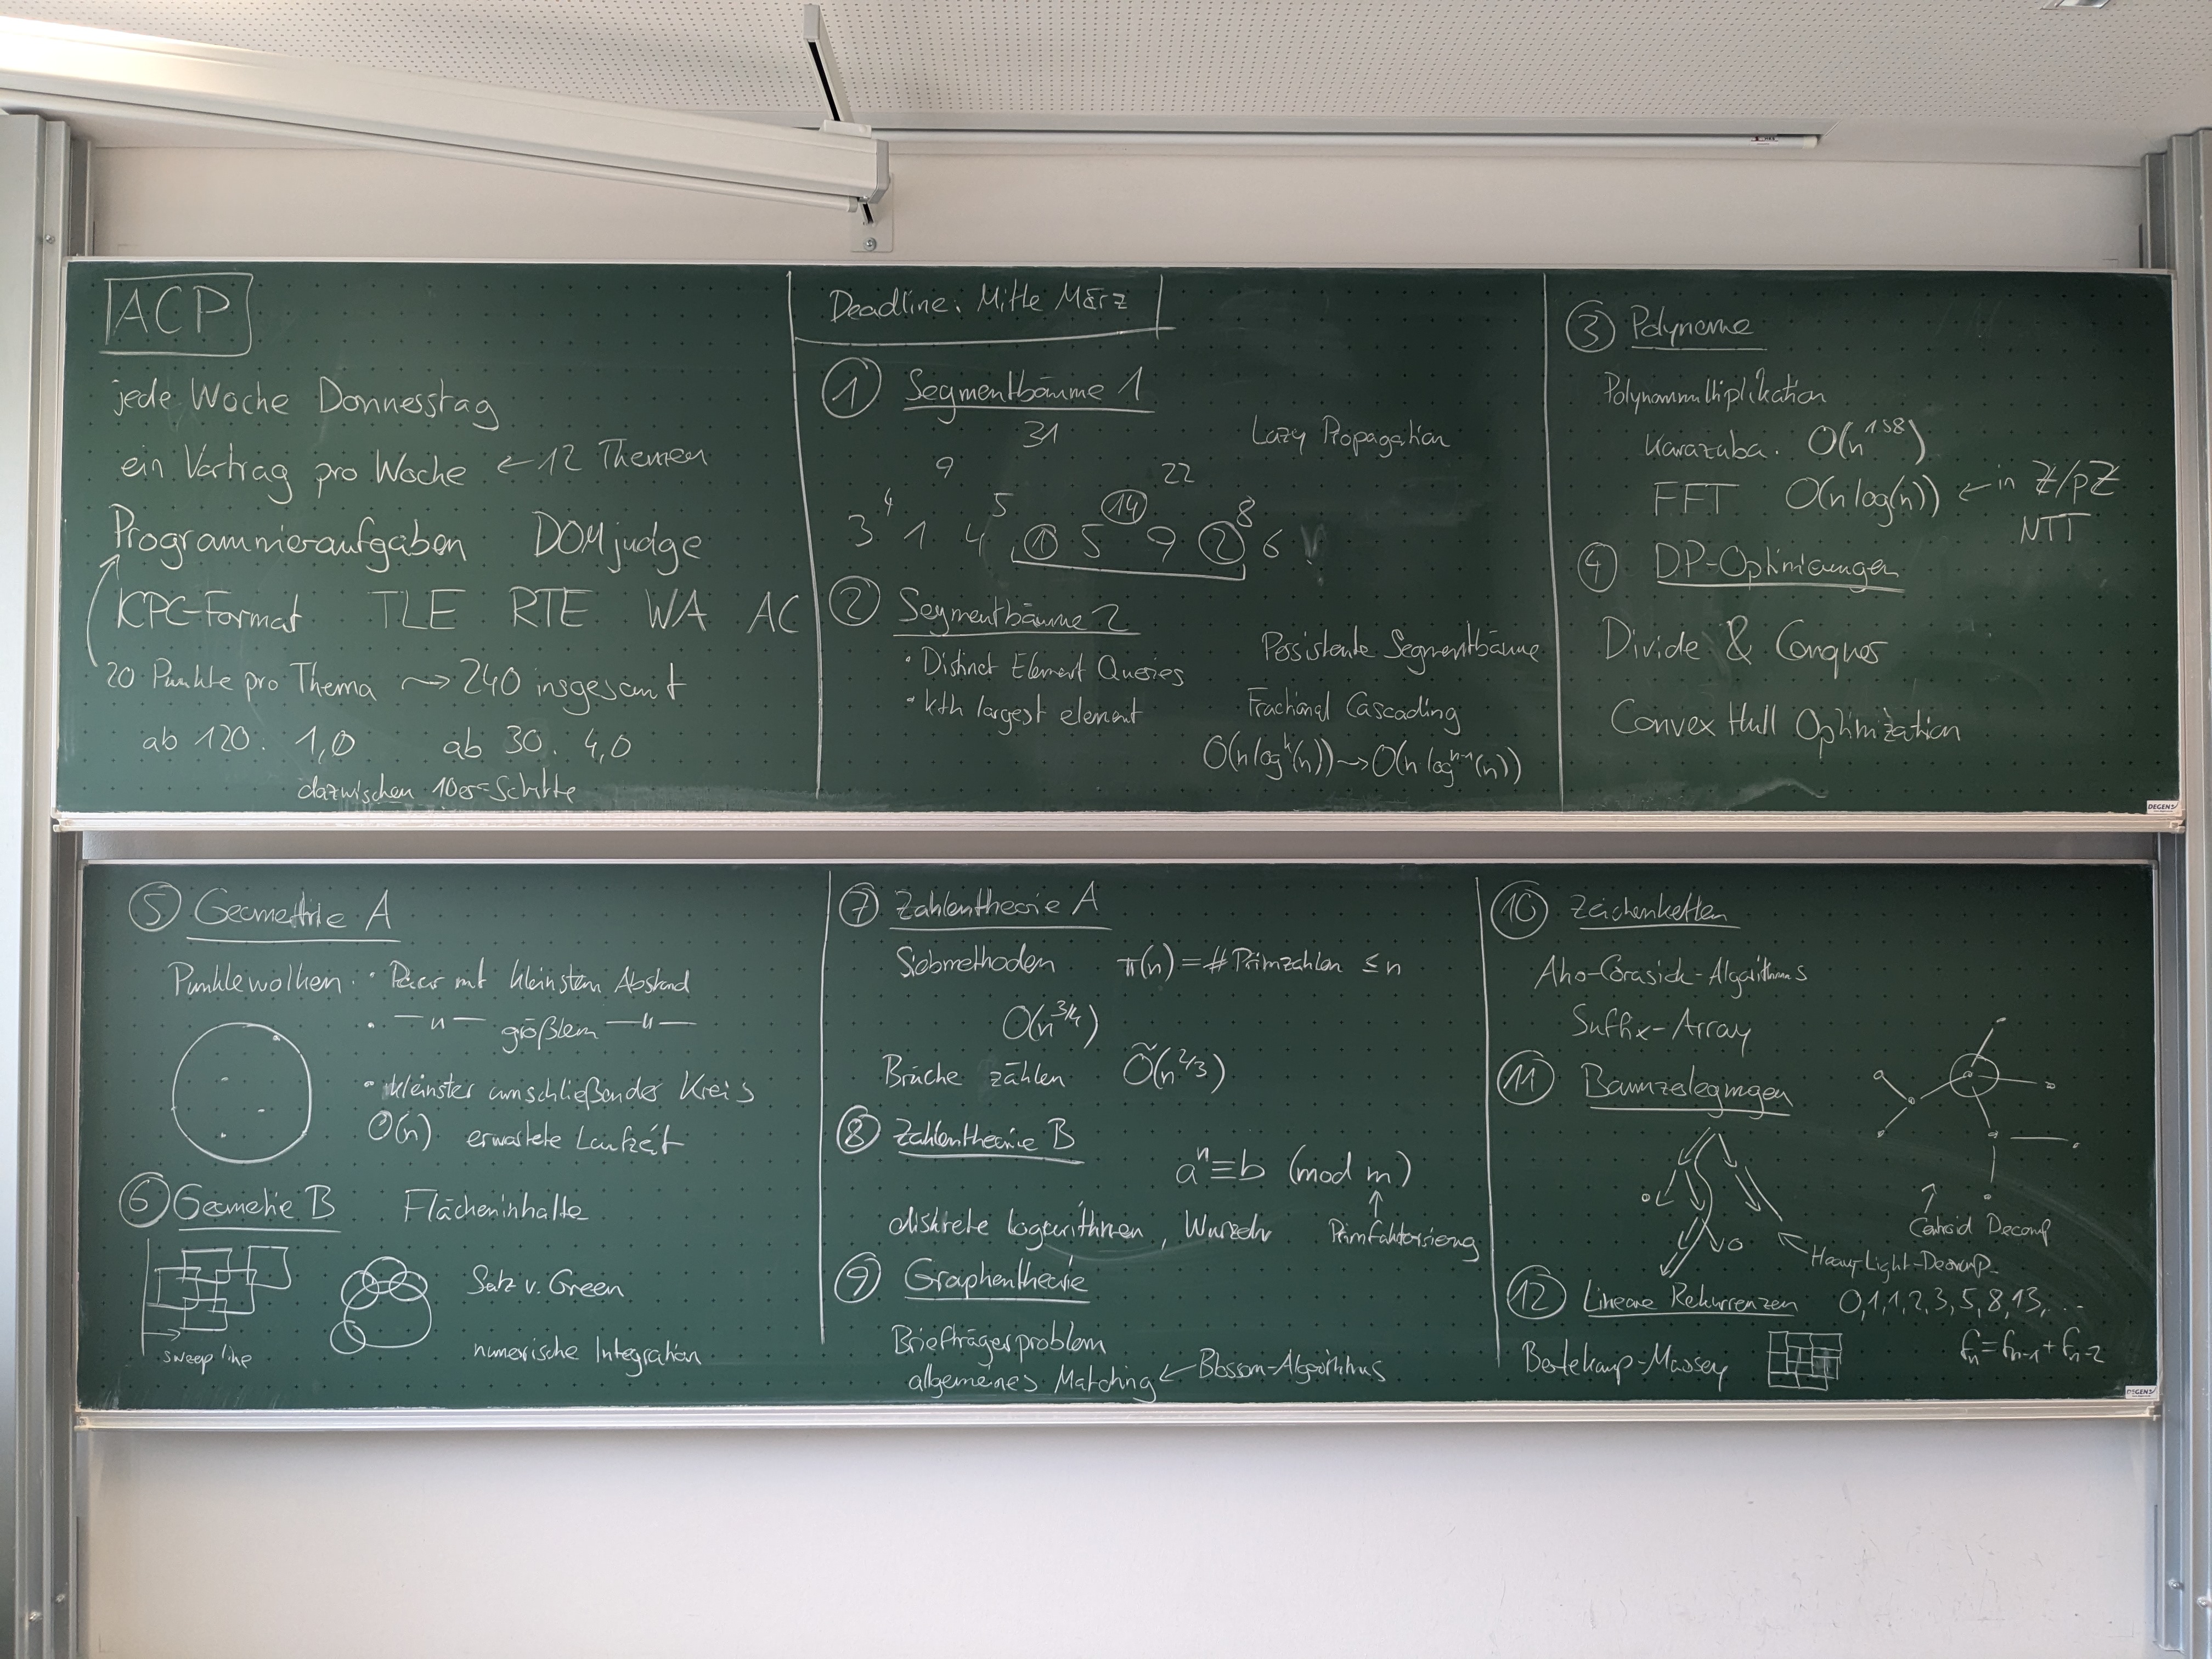 ACP
jede Woche Donnerstag
ein Vortrag pro Woche ← 12 Themen
Programmieraufgaben DOMjudge
ICPC-Format TLE RTE WA AC
20 Punkte pro Thema ⇝ 240 insgesamt
ab 120: 1,0 ab 30: 4,0
dazwischen 10er-Schritte
Deadline: Mitte März
① Segmentbäume 1
31
Lazy Propagation
9 22
4 5 14 8
3 1 4 1 5 9 2 6
② Segmentbäume 2
• Distinct Element Queries
• kth largest element
Persistente Segmentbäume
Fractional Cascading
O(n logᵏ(n)) ⇝ O(n logᵏ⁻¹(n))
③ Polynome
Polynommultiplikation
Karazuba: O(n^1.58)
FFT O(n log(n)) ← in ℤ/pℤ
NTT
④ DP-Optimierungen
Divide & Conquer
Convex Hull Optimization
⑤ Geometrie A
Punktewolken: • Paar mit kleinstem Abstand
• —"— größtem —"—
• kleinster umschließender Kreis
O(n) erwartete Laufzeit
⑥ Geometrie B Flächeninhalte
sweep line
Satz v. Green
numerische Integration
⑦ Zahlentheorie A
Siebmethoden π(n) = # Primzahlen ≤ n
O(n^3/4)
Brüche zählen Õ(n^2/3)
⑧ Zahlentheorie B
aⁿ ≡ b (mod m)
diskrete Logarithmen, Wurzeln
↑ Primfaktorisierung
⑨ Graphentheorie
Briefträgerproblem
allgemeines Matching ← Blossom-Algorithmus
⑩ Zeichenketten
Aho-Corasick-Algorithmus
Suffix-Array
⑪ Baumzerlegungen
Centroid Decomp
Heavy-Light-Decomp.
⑫ Lineare Rekurrenzen 0,1,1,2,3,5,8,13,...
Berlekamp-Massey
fₙ = fₙ₋₁ + fₙ₋₂
DEGENS
DEGENS